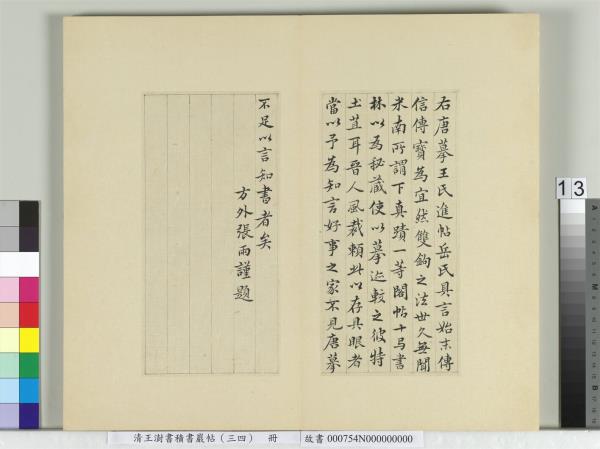 右唐摹王氏進帖岳氏具言始末傳
信傳寶為宜然雙鉤之法世久無聞
米南所謂下真蹟一等閣帖十与書
林以為秘藏使以摹迹較之彼特
土苴耳晉人風裁賴此以存具眼者
當以予為知言好事之家不見唐摹
不足以言知書者矣
方外張雨謹題
13
清王澍書積書巖帖（三四） 冊
故書 000754N000000000